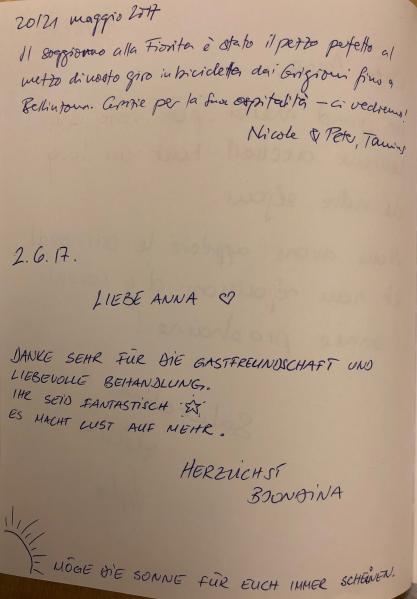 20/21 maggio 2017
Il soggiorno alla Fiorita è stato il pezzo perfetto al
mezzo di nosto giro in bicicletta dai Grigioni fino a
Bellinzona. Grazie per la Sua ospitalità – ci vedremo!
Nicole & Peter, Tamins
2.6.17.
LIEBE ANNA ♡
DANKE SEHR FÜR DIE GASTFREUNDSCHAFT UND
LIEBEVOLLE BEHANDLUNG.
IHR SEID FANTASTISCH ☆
ES MACHT LUST AUF MEHR.
HERZLICHST
BJONDINA
MÖGE DIE SONNE FÜR EUCH IMMER SCHEINEN.